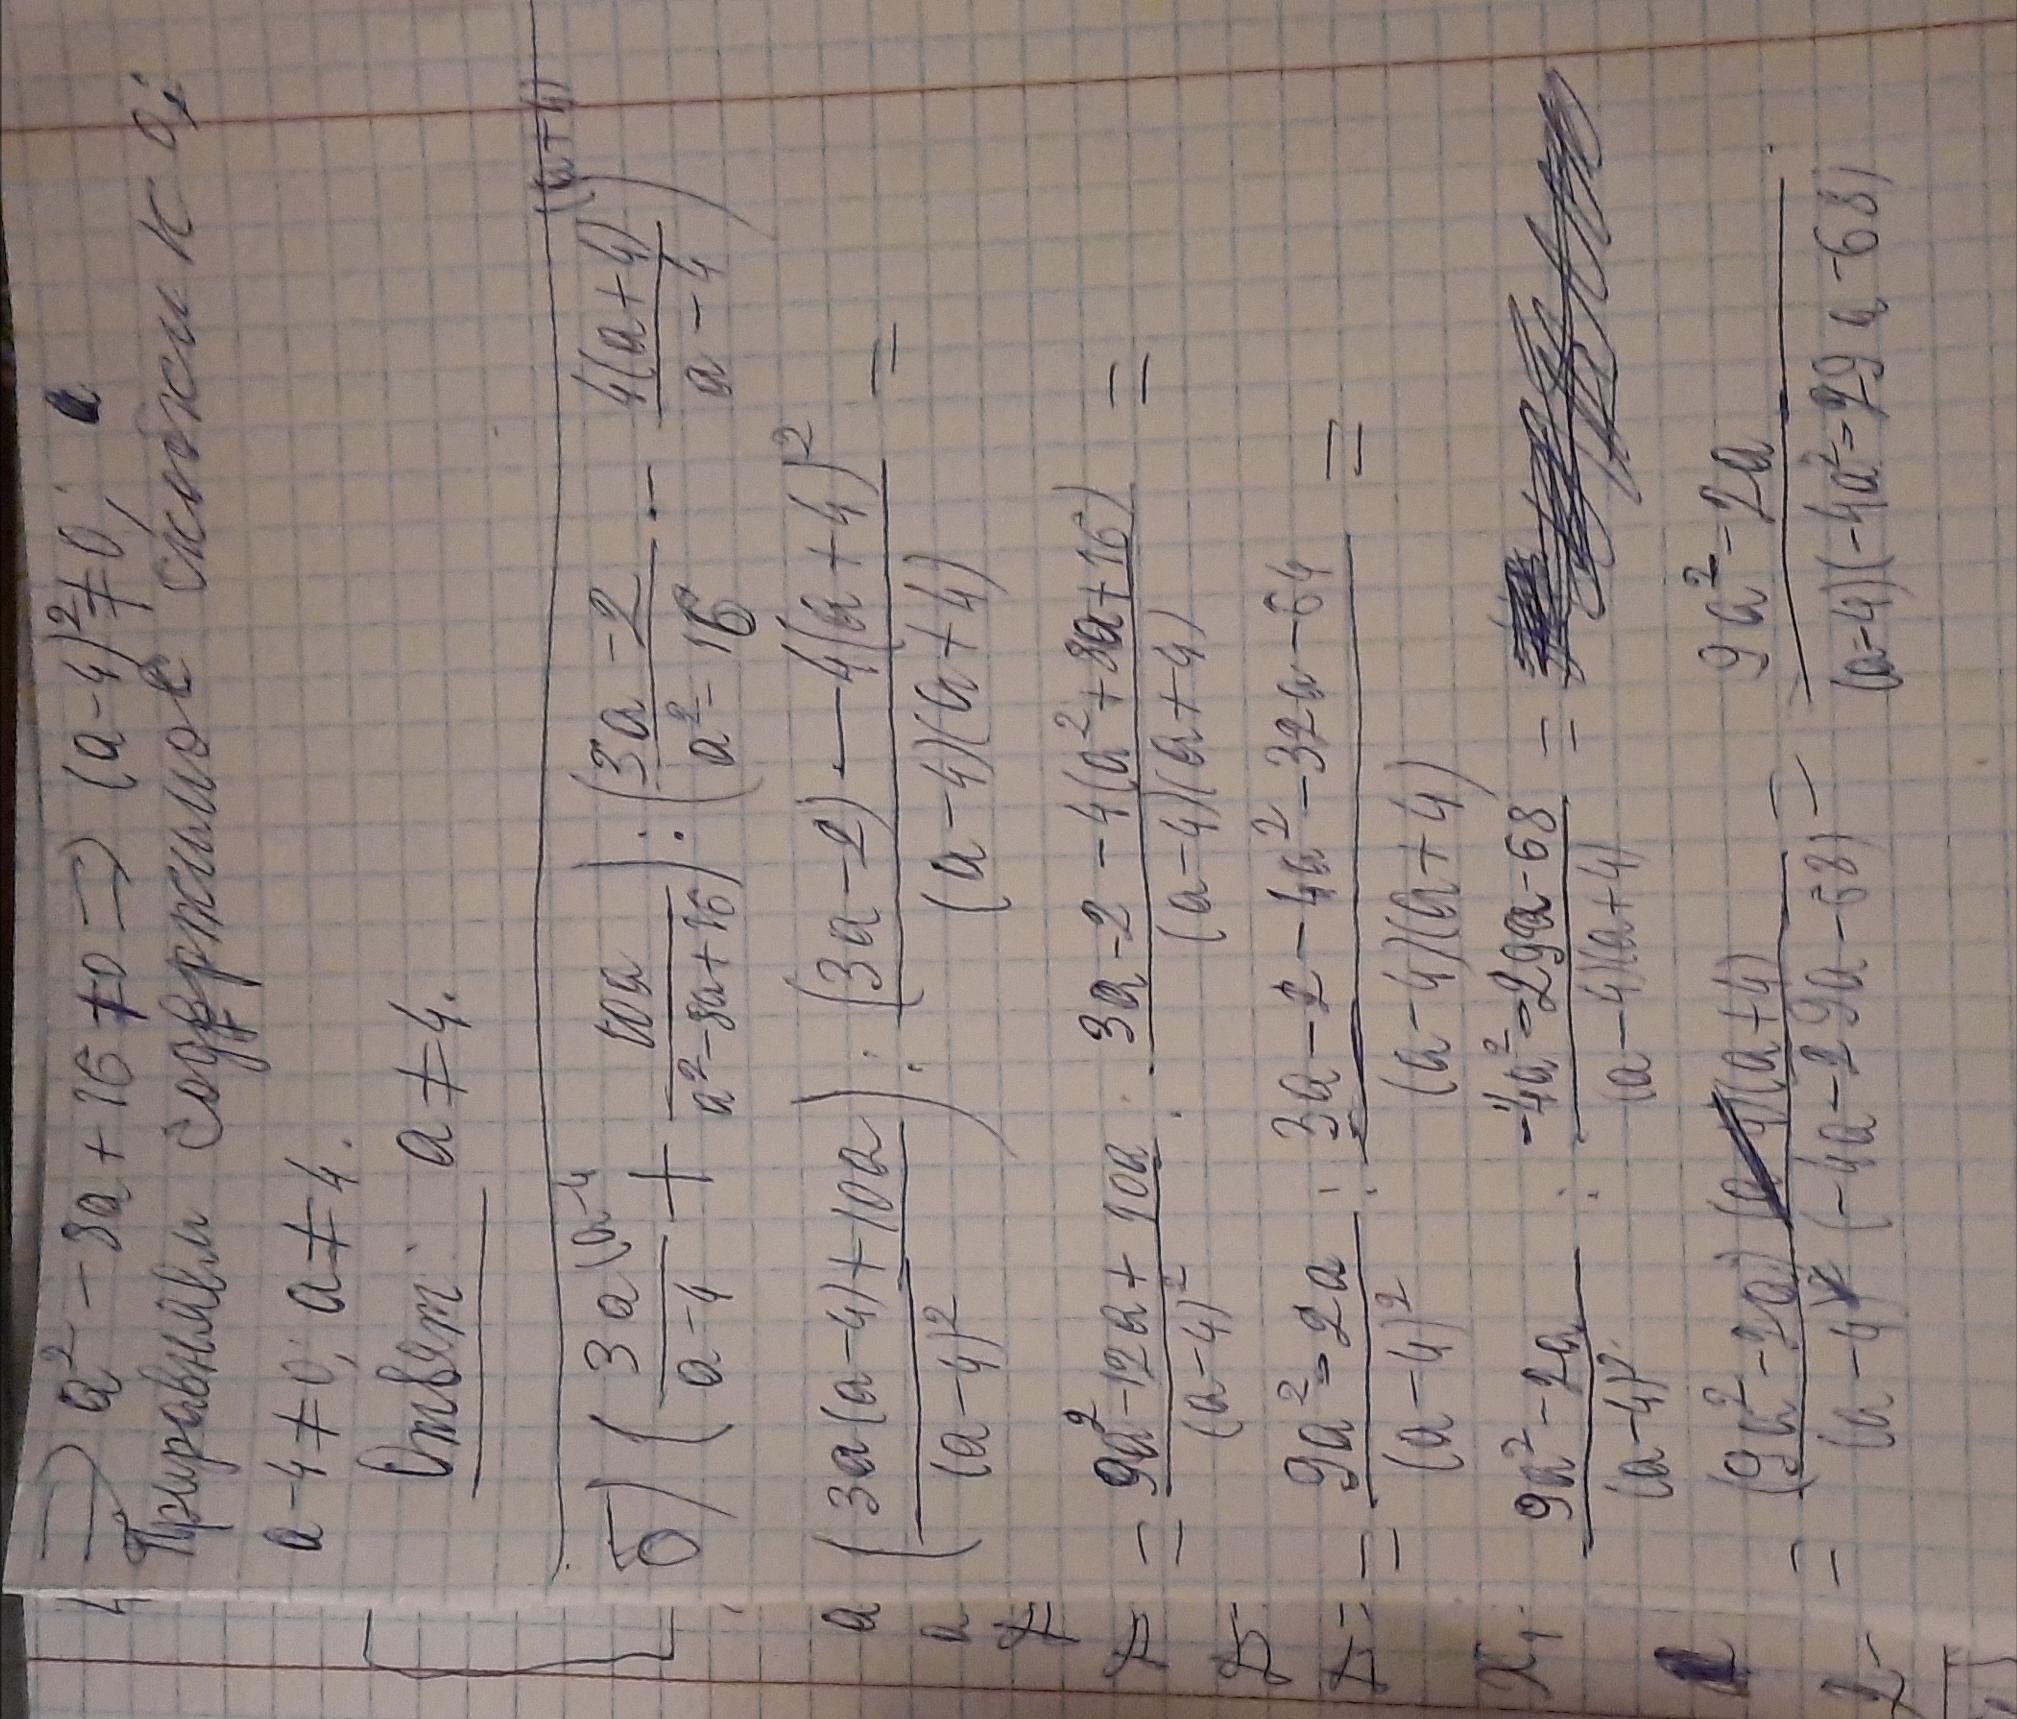 => a² - 8a + 16 ≠ 0 => (a-4)² ≠ 0;
Приравняем содержимое скобки к 0;
a - 4 ≠ 0; a ≠ 4.
Ответ: a ≠ 4.
б) (3a(a-4 / a-4 + 10a / a²-8a+16) : (3a-2 / a²-16 - 4(a+4) / a-4)
(3a(a-4)+10a / (a-4)²) : (3a-2) - 4(a+4)² / (a-4)(a+4) =
= 9a²-12a+10a / (a-4)² : 3a-2-4(a²+8a+16) / (a-4)(a+4) =
= 9a²=2a / (a-4)² : 3a-2-4a²-32a-64 / (a-4)(a+4) =
9a²-2a / (a-4)² : -4a²=29a-68 / (a-4)(a+4) =
= (9a²-2a)(a-4)(a+4) / (a-4)(-4a-29a-68) = 9a²-2a / (a-4)(-4a²=29a-68)